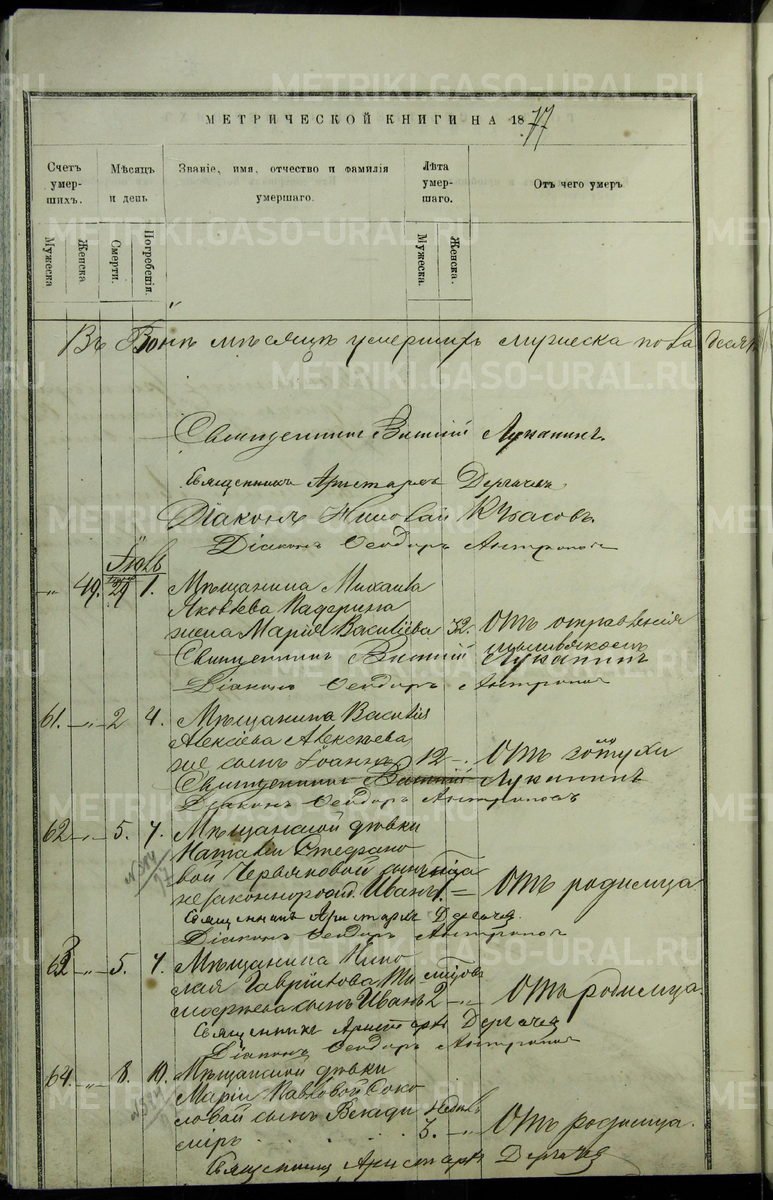 МЕТРИЧЕСКОЙ КНИГИ НА 1877
Счетъ умер-шихъ.
Мѣсяцъ и день
Званіе, имя, отчество и фамилія умершаго.
Лѣта умер-шаго.
Отъ чего умеръ
Мужеска
Женска
Смерти.
Погребенія.
Мужеска.
Женска.
Въ Іюнѣ мѣсяцѣ умершихъ мужеска пола
Священникъ Луканинъ.
Священникъ Аристархъ Дергачев
Діаконъ Николай
Діаконъ Ѳеодоръ Антропов
Іюль
49. 29 1. Мѣщанина Михаила
Яковлева
жена Марія Васильева 32. Отъ отравленія
мышьякомъ
Священникъ Луканинъ
Діаконъ Ѳеодоръ Антропов
61. 2 4. Мѣщанина Василія
Алексіева Алексѣева
же сынъ Іоаннъ 12 Отъ
Священникъ Луканинъ
Діаконъ Ѳеодоръ Антроповъ
62 5. 7. Мѣщанской дѣвки
Наталіи Стефано
вой Червяковой сынъ
незаконнорожд. Иванъ 1. Отъ родимца
Священникъ Аристархъ Дергачев
Діаконъ Ѳеодоръ Антропов
63 5. 7. Мѣщанина Нико
лая Гаврилова Ти
моѳеева сынъ Иванъ 2 Отъ родимца.
Священникъ Аристархъ Дергачев
Діаконъ Ѳеодоръ Антропов
64 8. 10. Мѣщанской дѣвки
Маріи Павловой Соко
ловой сынъ Влади недѣль
міръ 5. Отъ родимца.
Священникъ Аристархъ Дергачев
METRIKI.GASO-URAL.RU